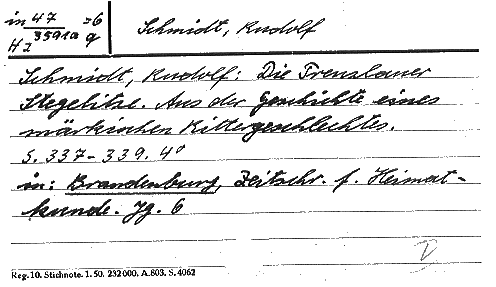 in 47 =6
Hz 3591a q
Schmidt, Rudolf
Schmidt, Rudolf: Die Prenzlauer
Stegelitze. Aus der Geschichte eines
märkischen Rittergeschlechtes.
S. 337-339. 4°
in: Brandenburg, Zeitschr. f. Heimat-
kunde. Jg. 6
Reg. 10. Stichnote. 1. 50. 232000. A.803. S. 4062